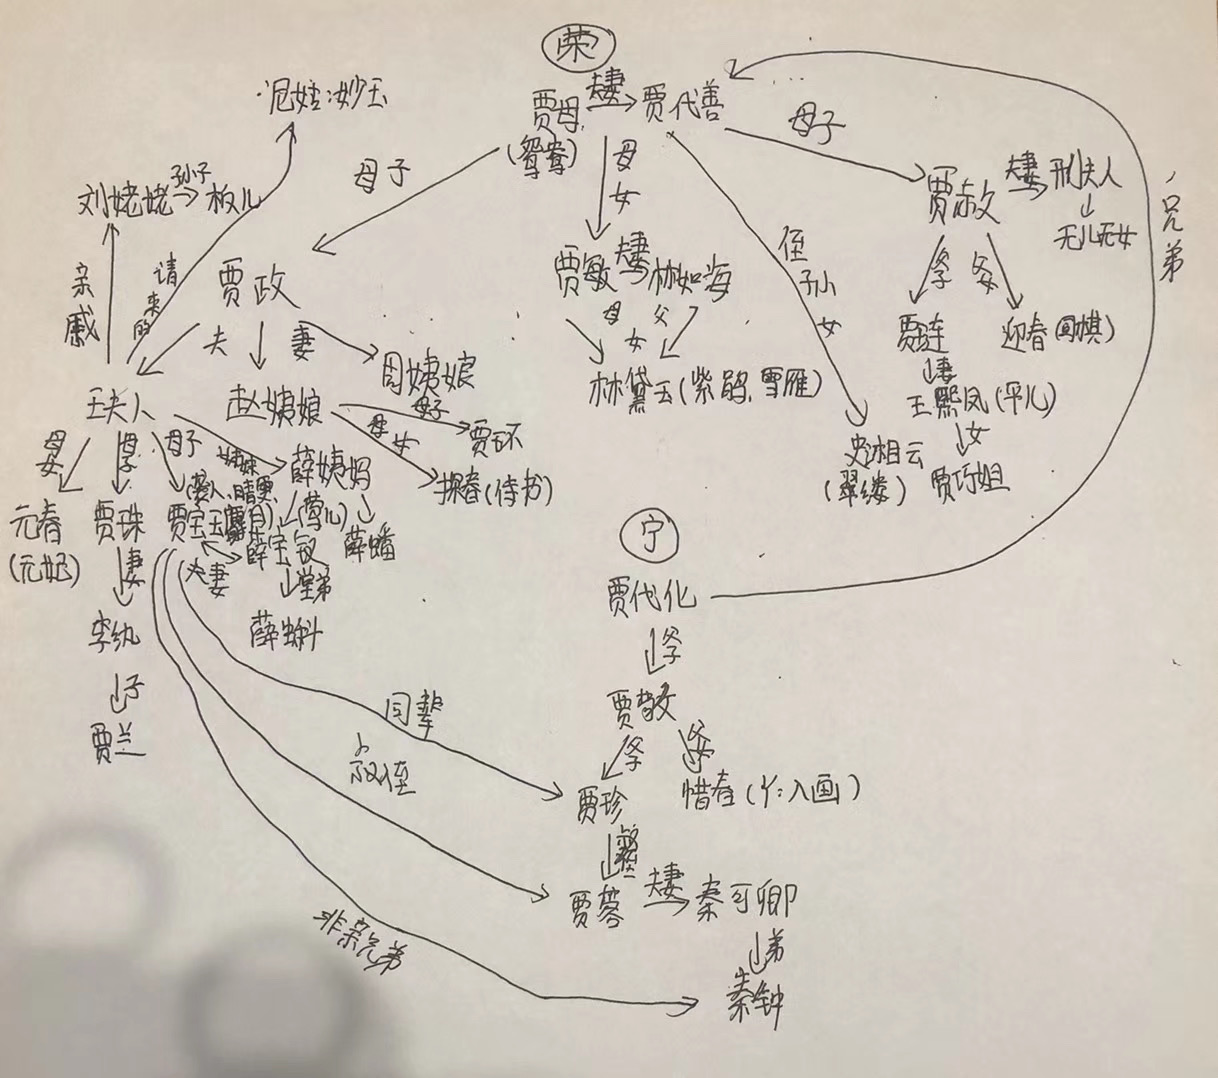 荣
尼姑:妙玉
贾母 夫妻 贾代善
(鸳鸯)
母子
母女
母子
侄孙女
兄弟
刘姥姥 孙子 板儿
亲戚
请来的
贾政
夫妻
贾敏 夫妻 林如海
母女
父
林黛玉(紫鹃.雪雁)
贾赦 夫妻 邢夫人
无儿无女
父子
父女
贾琏
迎春
妻
王熙凤(平儿)
女
贾巧姐
史湘云
(翠缕)
王夫人
赵姨娘
周姨娘
母子
贾环
母女
探春(侍书)
母女
母子
母子
姐妹
薛姨妈
元春
(元妃)
贾珠
贾宝玉
(袭人.晴雯.麝月)
(莺儿)
薛宝钗
薛蟠
夫妻
堂弟
薛蝌
妻
李纨
子
贾兰
宁
贾代化
父子
贾敬
父子
父女
贾珍
惜春(丫:入画)
同辈
叔侄
贾蓉 夫妻 秦可卿
弟
秦钟
非亲兄弟